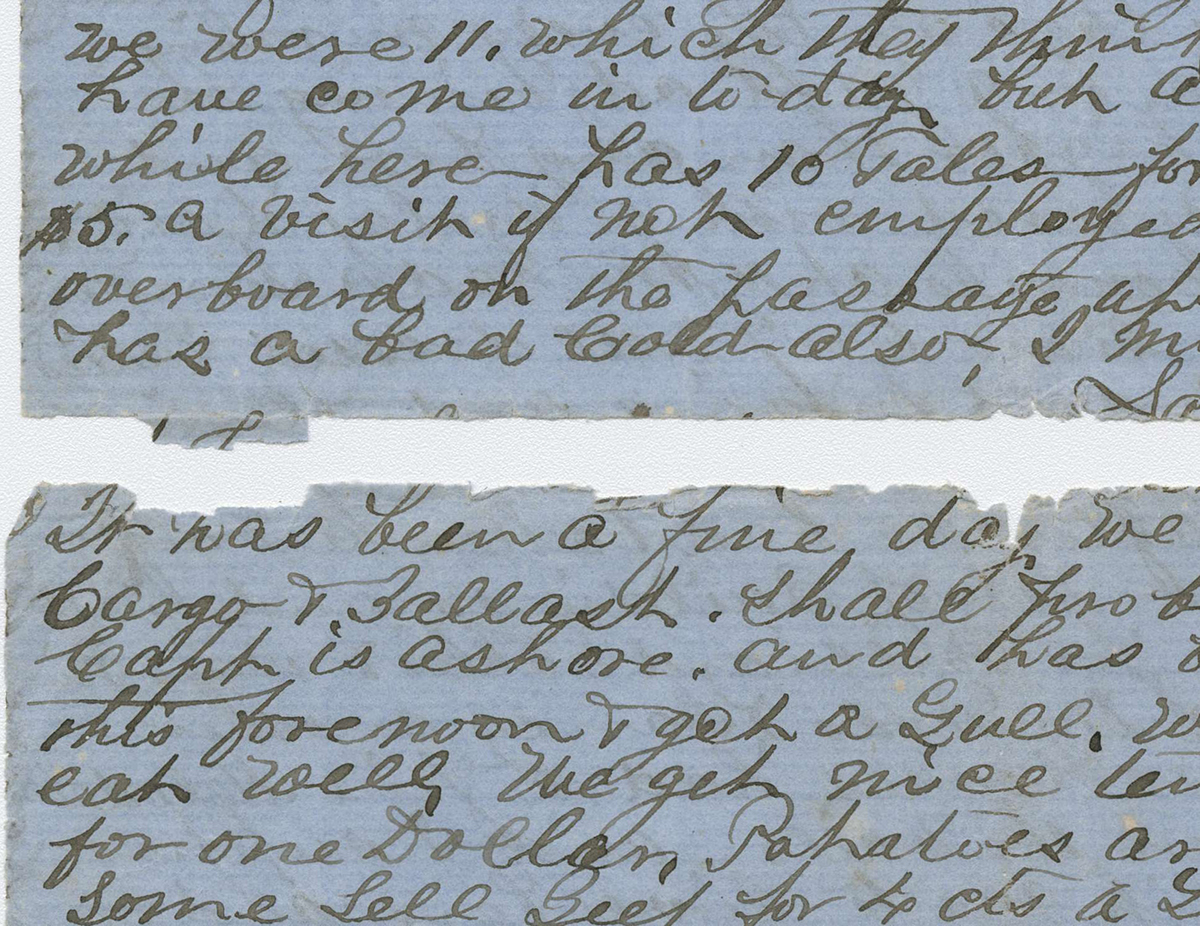 we were 11. which they think
have come in to-day but a
while here has 10 Tales for
$5. a visit if not employed
overboard on the passage up
has a bad Coald also, I m
Sa
It has been a fine day we
Cargo & Ballast. Shall prob
Capt is ashore. and has
this forenoon & get a Gull. W
eat well, We get nice
for one Dollar, Potatoes ar
Some Sell Beef for 4 cts a